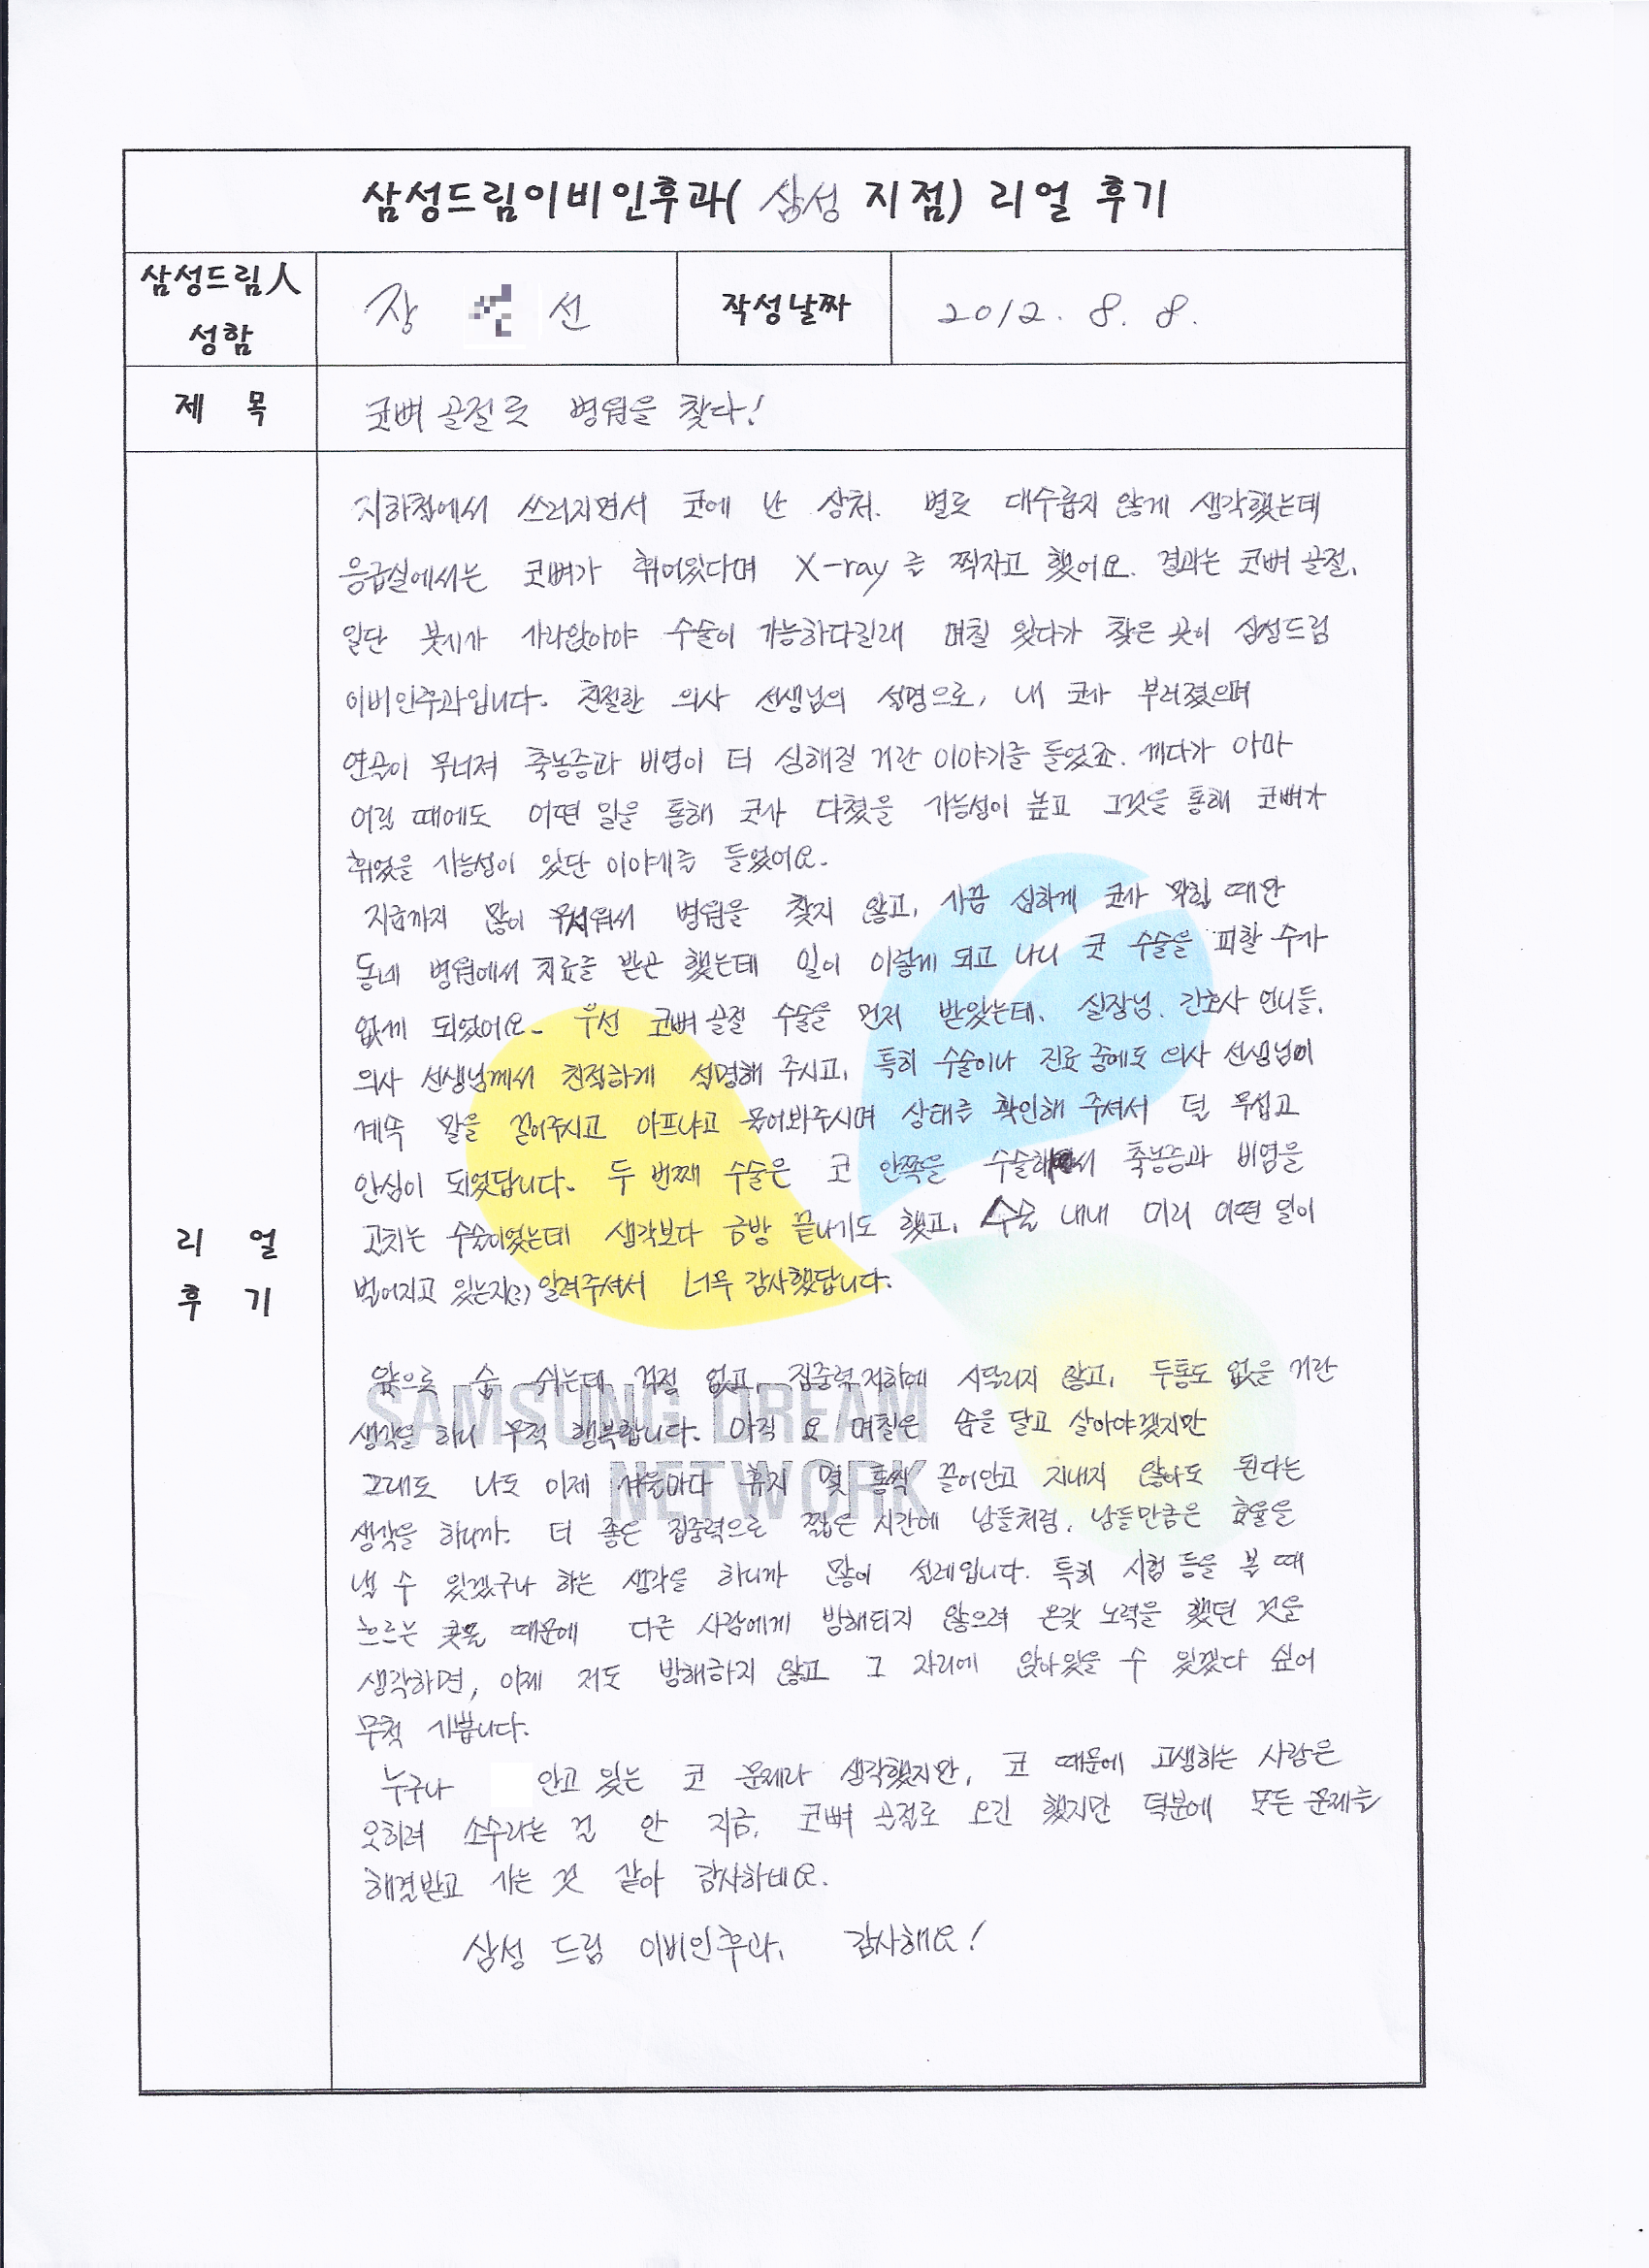 삼성드림이비인후과( 삼성 지점) 리얼 후기
삼성드림人
성함
장 선
작성날짜
2012. 8. 8.
제 목
코뼈 골절로 병원을 찾다!
리 얼
후 기
지하철에서 쓰러지면서 코에 난 상처. 별로 대수롭지 않게 생각했는데
응급실에서는 코뼈가 휘어있다며 X-ray를 찍자고 했어요. 결과는 코뼈 골절.
일단 붓기가 가라앉아야 수술이 가능하다길래 며칠 있다가 찾은 곳이 삼성드림
이비인후과입니다. 친절한 의사 선생님의 설명으로, 내 코가 부러졌으며
연골이 무너져 축농증과 비염이 더 심해질 거란 이야기를 들었죠. 게다가 아마
어릴 때에도 어떤 일을 통해 코가 다쳤을 가능성이 높고 그것을 통해 코뼈가
휘었을 가능성이 있단 이야기를 들었어요.
지금까지 많이 무서워서 병원을 찾지 않고, 가끔 심하게 코가 막힐 때만
동네 병원에서 치료를 받곤 했는데 일이 이렇게 되고 나니 코 수술을 피할 수가
없게 되었어요. 우선 코뼈 골절 수술을 먼저 받았는데, 실장님, 간호사 언니들,
의사 선생님께서 친절하게 설명해 주시고, 특히 수술이나 진료 중에도 의사 선생님이
계속 말을 걸어주시고 아프냐고 물어봐주시며 상태를 확인해 주셔서 덜 무섭고
안심이 되었답니다. 두 번째 수술은 코 안쪽을 수술해서 축농증과 비염을
고치는 수술이었는데 생각보다 금방 끝나기도 했고, 수술 내내 미리 어떤 일이
벌어지고 있는지(?) 알려주셔서 너무 감사했답니다.
앞으로 숨 쉬는데 걱정 없고, 집중력 저하에 시달리지 않고, 두통도 없을 거란
생각을 하니 무척 행복합니다. 아직 요 며칠은 솜을 달고 살아야겠지만
그래도 나도 이제 겨울마다 휴지 몇 통씩 끌어안고 지내지 않아도 된다는
생각을 하니까. 더 좋은 집중력으로 짧은 시간에 남들처럼, 남들만큼은 효율을
낼 수 있겠구나 하는 생각을 하니까 많이 설레입니다. 특히 시험 등을 볼 때
흐르는 콧물 때문에 다른 사람에게 방해되지 않으려 온갖 노력을 했던 것을
생각하면, 이제 저도 방해하지 않고 그 자리에 앉아있을 수 있겠다 싶어
무척 기쁩니다.
누구나 안고 있는 코 문제라 생각했지만, 코 때문에 고생하는 사람은
오히려 소수라는 걸 안 지금, 코뼈 골절로 오긴 했지만 덕분에 모든 문제를
해결받고 가는 것 같아 감사하네요.
삼성 드림 이비인후과, 감사해요!
SAMSUNG DREAM
NETWORK